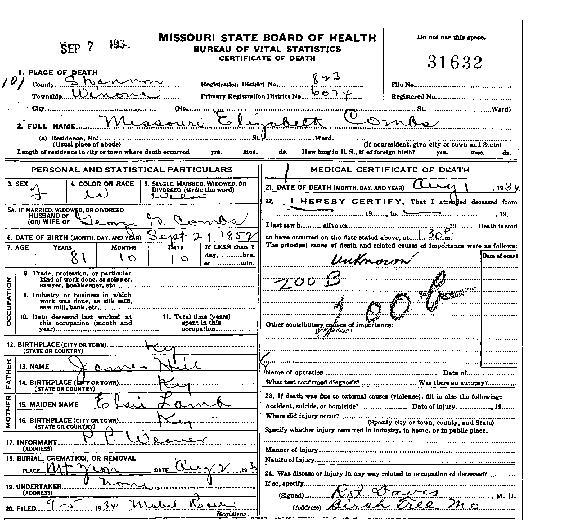 SEP 7 193
MISSOURI STATE BOARD OF HEALTH
BUREAU OF VITAL STATISTICS
CERTIFICATE OF DEATH
Do not use this space.
31632
1. PLACE OF DEATH
County Shannon
Registration District No. 823
File No.
Township Winona
Primary Registration District No. 6074
Registered No.
City (No. St. Ward)
2. FULL NAME Missouri Elizabeth Combs
(a) Residence, No. St. Ward.
(Usual place of abode) (If nonresident, give city or town and State)
Length of residence in city or town where death occurred yrs. mos. ds. How long in U. S., if of foreign birth? yrs. mos. ds.
PERSONAL AND STATISTICAL PARTICULARS
3. SEX F
4. COLOR OR RACE W
5. SINGLE, MARRIED, WIDOWED, OR DIVORCED (write the word)
5A. IF MARRIED, WIDOWED, OR DIVORCED
HUSBAND OF
(OR) WIFE OF Combs
6. DATE OF BIRTH (MONTH, DAY, AND YEAR) Sept 21, 1852
7. AGE YEARS MONTHS DAYS IF LESS than 1 day, hrs. or min.
81 10 10
OCCUPATION
8. Trade, profession, or particular kind of work done, as spinner, sawyer, bookkeeper, etc.
9. Industry or business in which work was done, as silk mill, saw mill, bank, etc.
10. Date deceased last worked at this occupation (month and year)
11. Total time (years) spent in this occupation
12. BIRTHPLACE (CITY OR TOWN) Ky
(STATE OR COUNTRY)
FATHER
13. NAME James Hill
14. BIRTHPLACE (CITY OR TOWN) Ky
(STATE OR COUNTRY)
MOTHER
15. MAIDEN NAME Lamb
16. BIRTHPLACE (CITY OR TOWN) Ky
(STATE OR COUNTRY)
17. INFORMANT
(ADDRESS)
18. BURIAL, CREMATION, OR REMOVAL
PLACE Mt Zion DATE Aug 2 193
19. UNDERTAKER None
(ADDRESS)
20. FILED 9-5 1934 Mabel
MEDICAL CERTIFICATE OF DEATH
21. DATE OF DEATH (MONTH, DAY, AND YEAR) Aug 1 1934
22. I HEREBY CERTIFY, That I attended deceased from
19 to 19
I last saw alive on 19 Death is said
to have occurred on the date stated above, at 30 P m.
The principal cause of death and related causes of importance were as follows:
Date of onset
Unknown
200 B
200 b
Other contributory causes of importance:
Name of operation Date of
What test confirmed diagnosis? Was there an autopsy?
23. If death was due to external causes (violence), fill in also the following:
Accident, suicide, or homicide? Date of injury 19
Where did injury occur?
(Specify city or town, county, and State)
Specify whether injury occurred in industry, in home, or in public place.
Manner of injury
Nature of injury
24. Was disease or injury in any way related to occupation of deceased?
If so, specify
(Signed) Davis M. D.
(Address) Birch Tree Mo